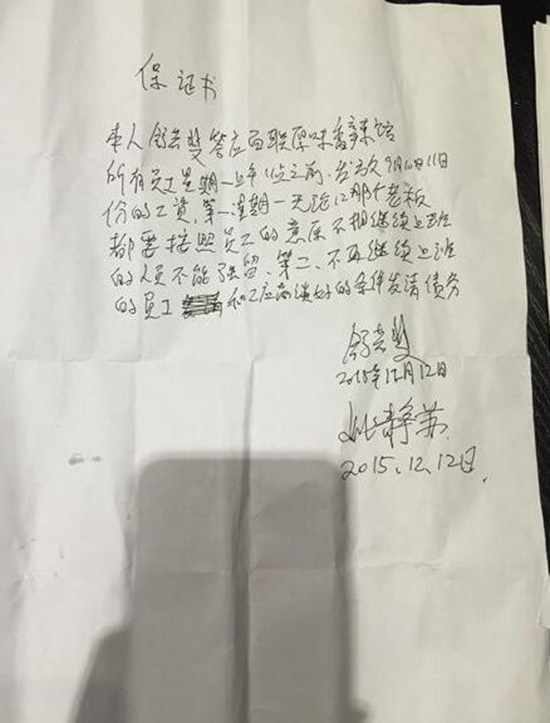 保证书
本人舒兴楚答应百联原味香辣馆
所有员工星期一上午10点之前发放9月10月11日
份的工资,第一星期一无论江那个老板
都要按照员工的意愿不想继续上班
的人员不能强留、第二、不再继续上班
的员工和供应商谈好的条件发清债务
2015年12月12日
姚静芬
2015.12.12日.